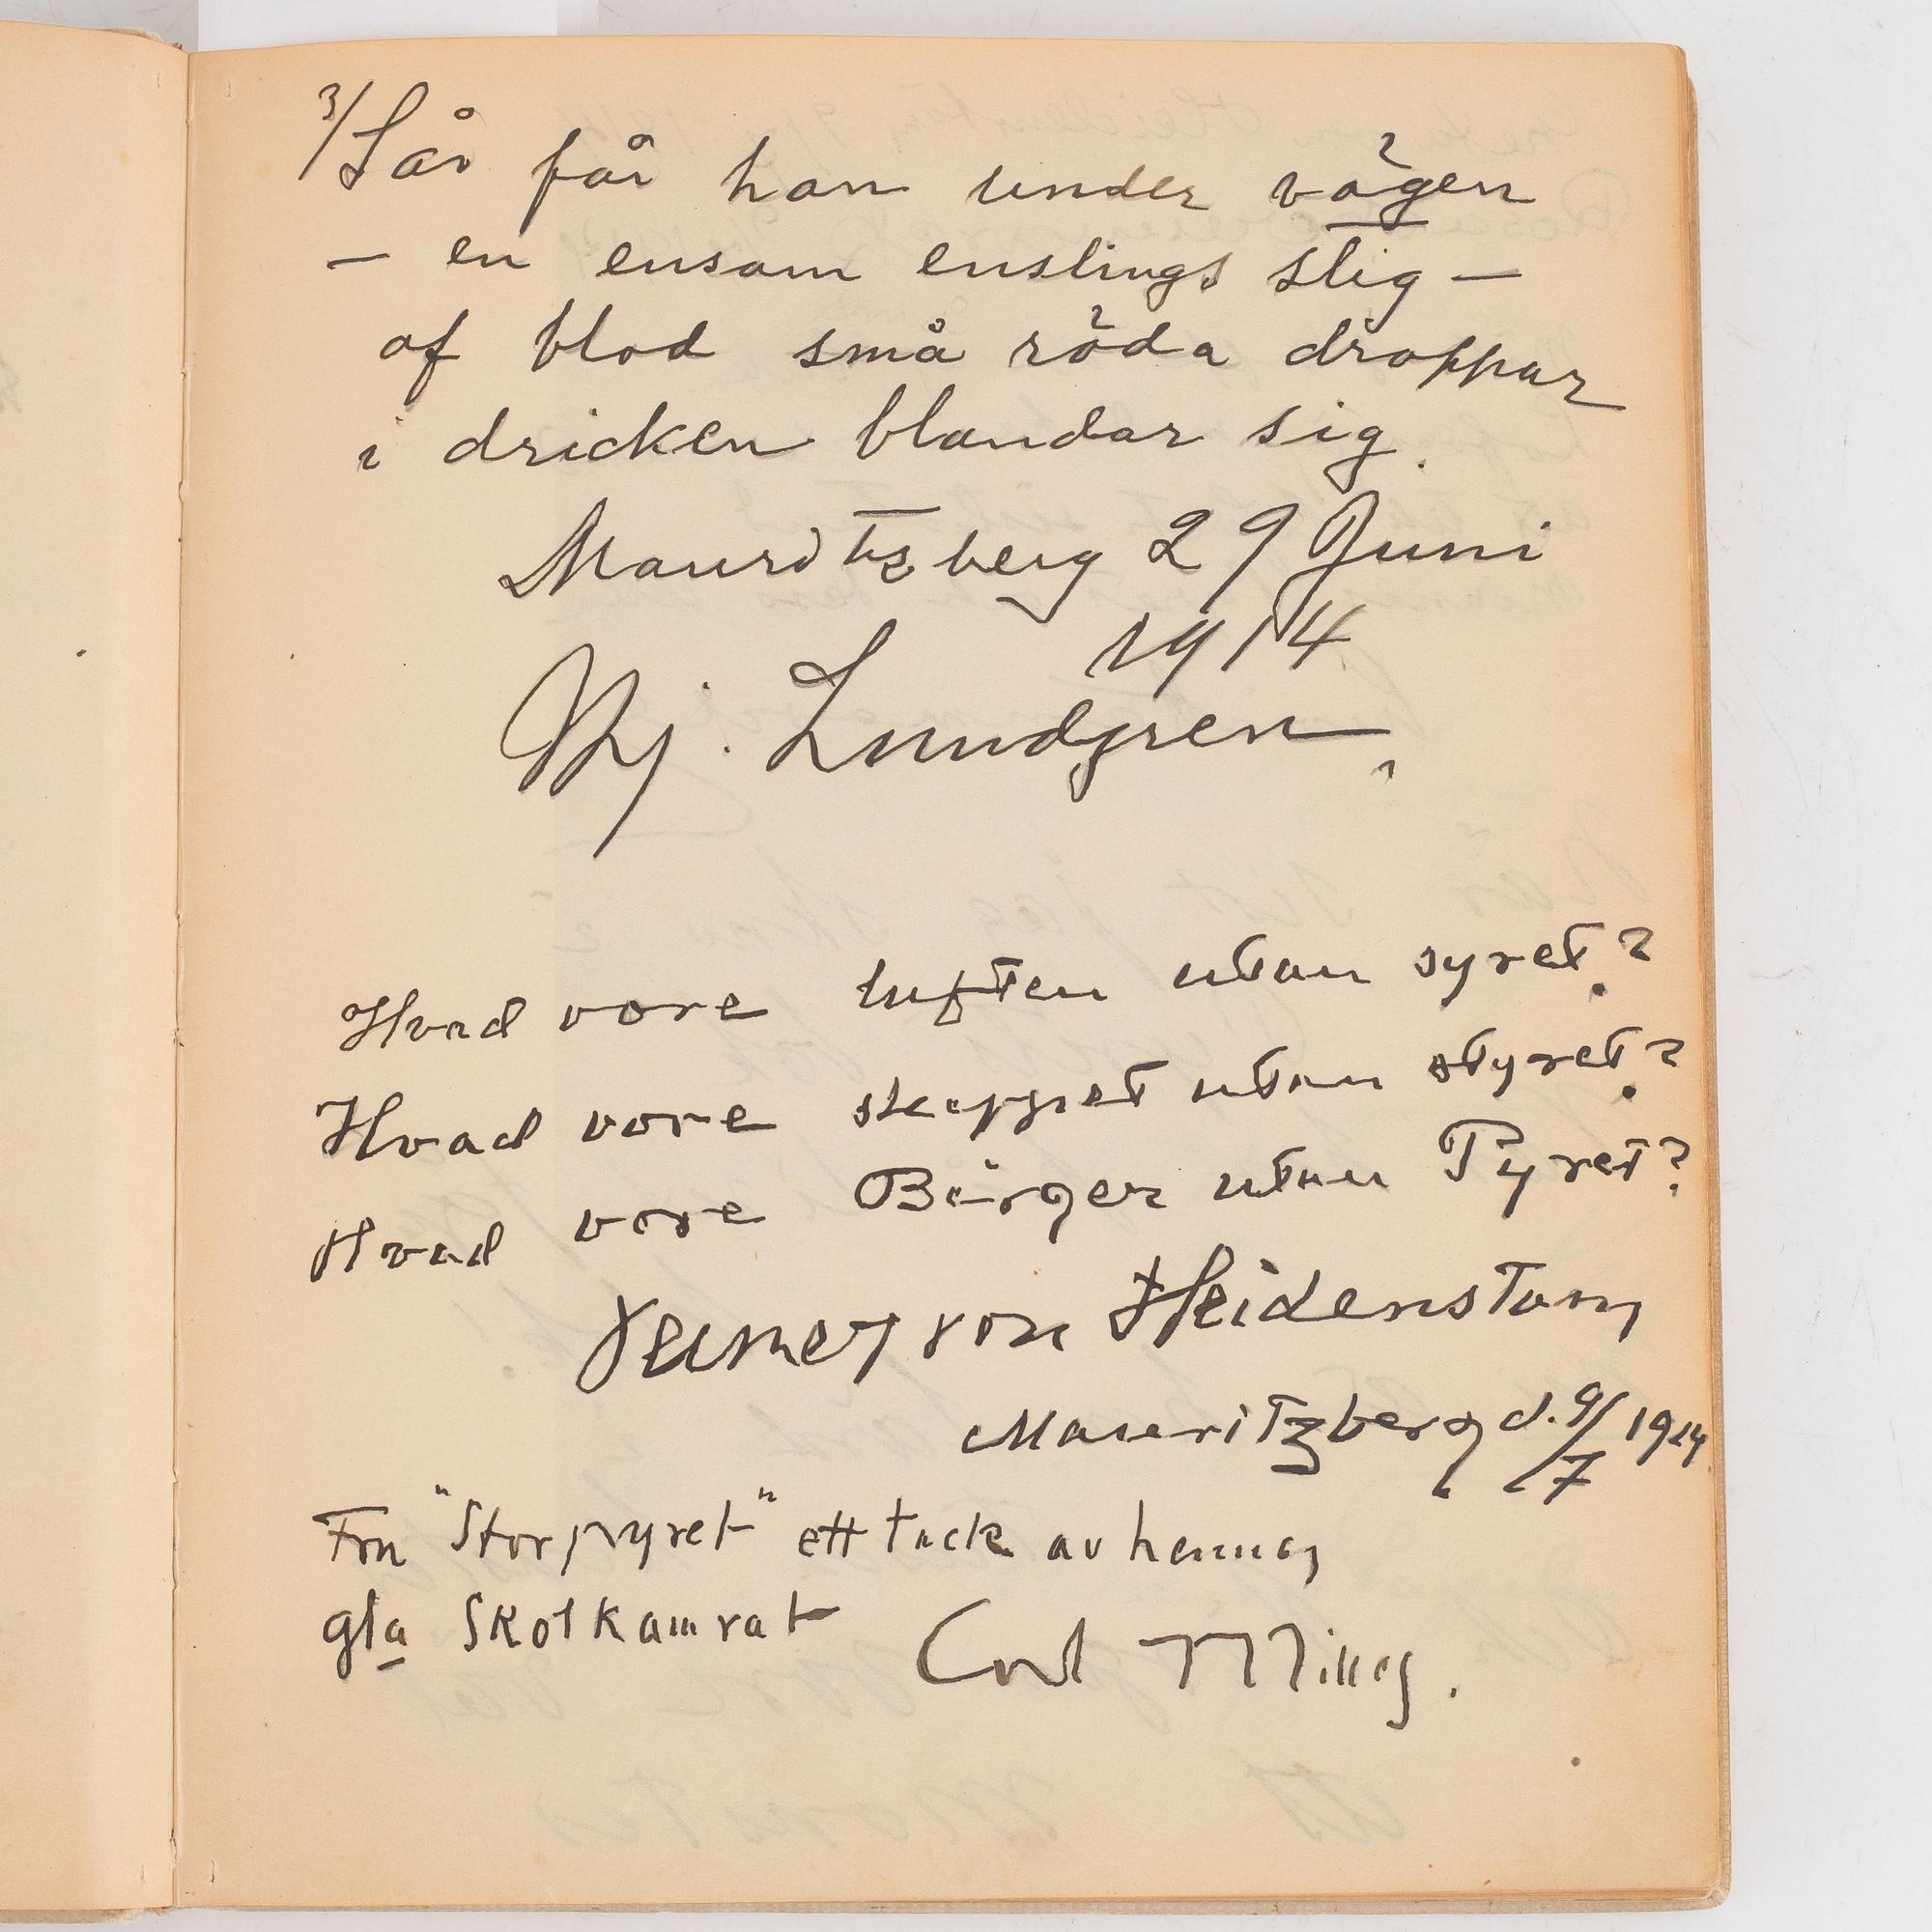 3/ Sår får han under vägen
— en ensam enslings stig —
af blod små röda droppar
i dricken blandar sig.
Mauritzberg 29 Juni
1914
Hj. Lundgren
Hvad vore luften utan syret?
Hvad vore skeppet utan styret?
Hvad vore Börger utan Pyret?
Verner von Heidenstam
Mauritzberg d. 9/7 1914
Fru "Storpyret" ett tack av hennes
gla skolkamrat Carl Milles.